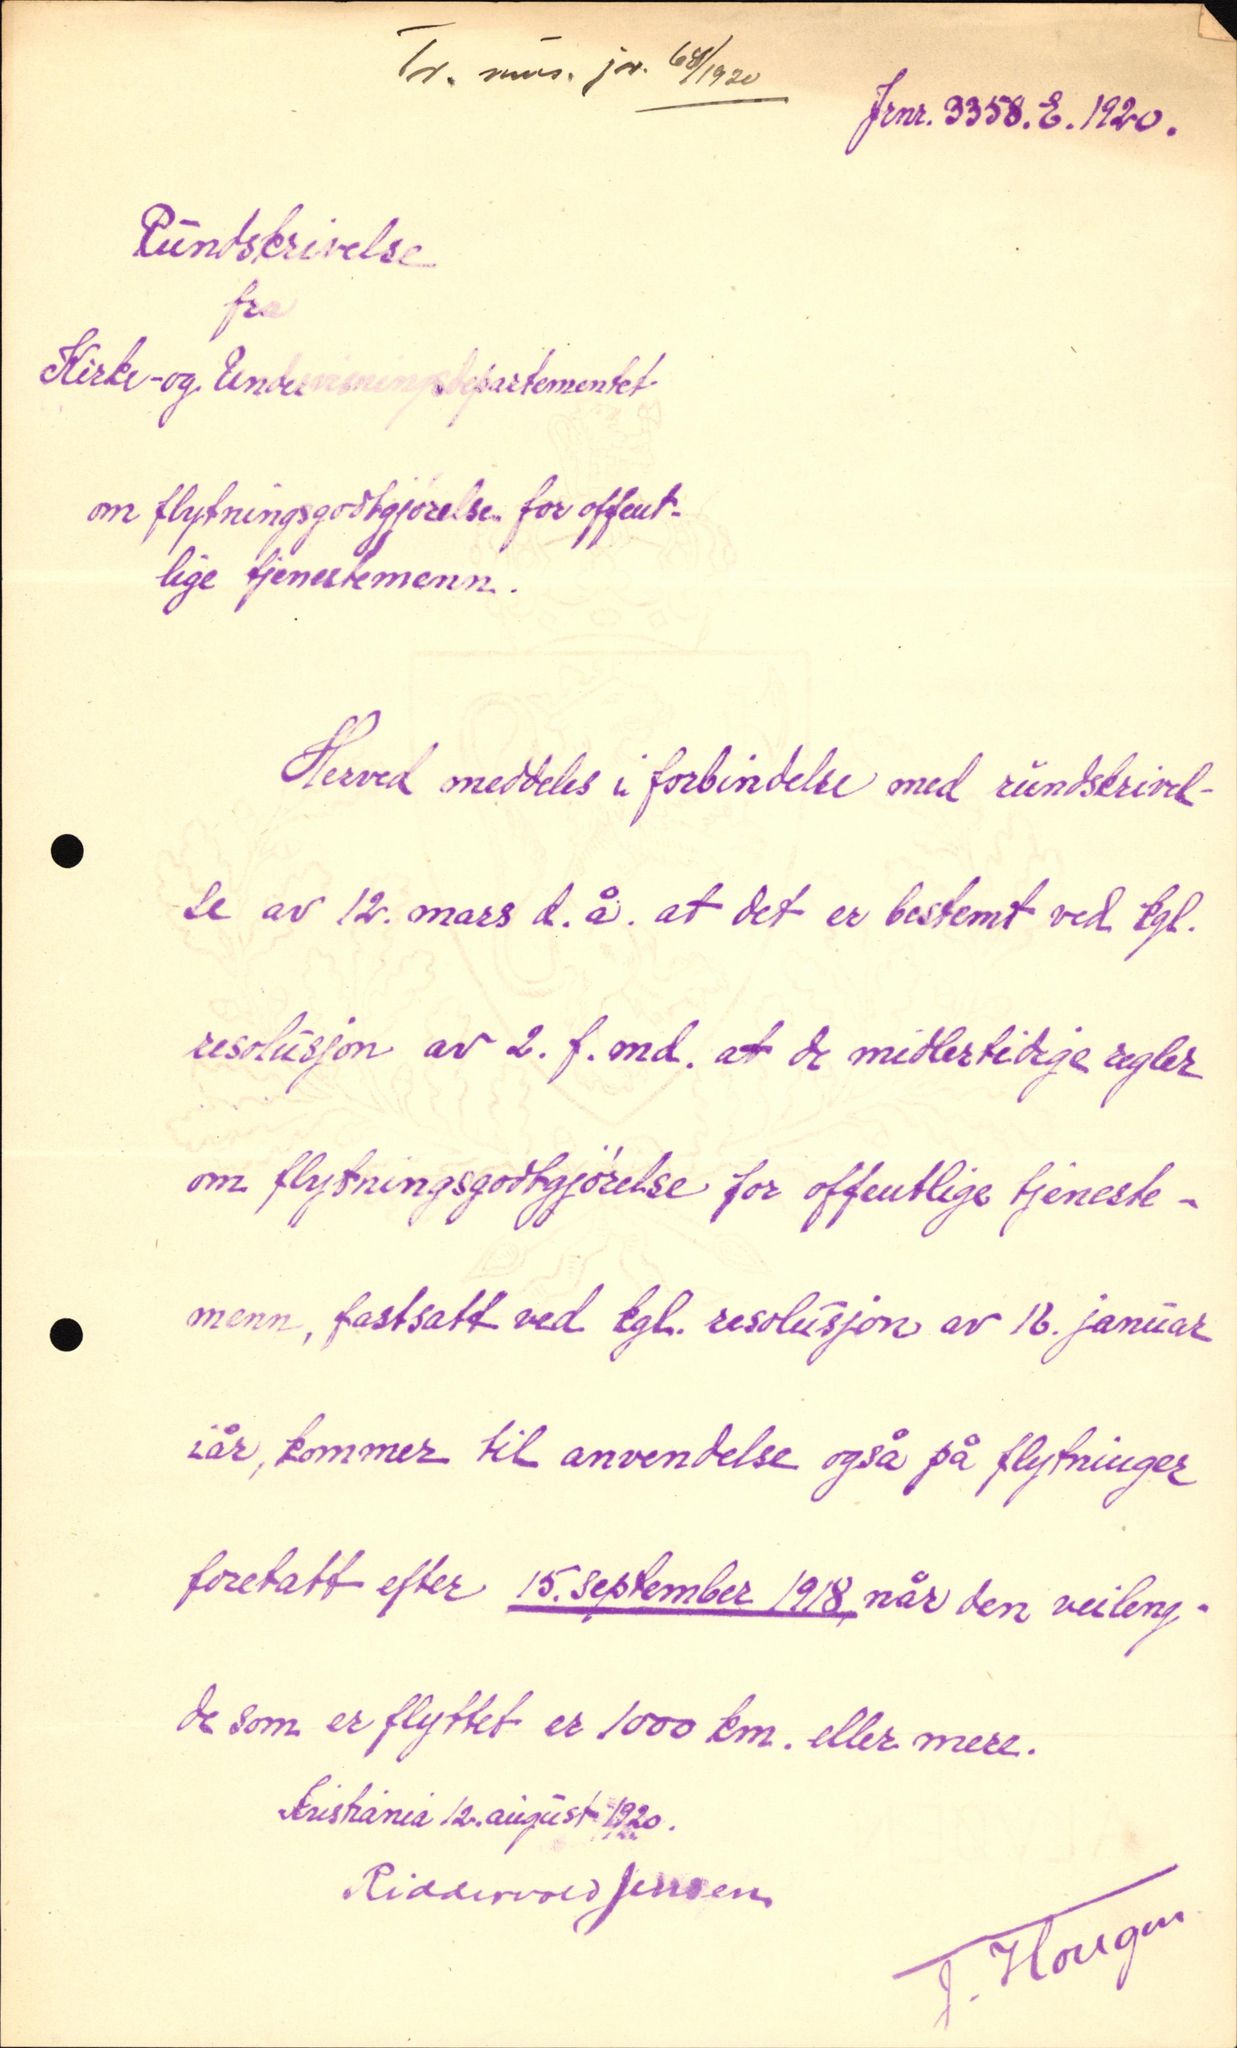 Tr. mus. jr. 68/1920
Jrnr. 3358. E. 1920.
Rundskrivelse
fra
Kirke- og Undervisningsdepartementet
om flytningsgodtgjørelse for offent-
lige tjenestemenn.
Herved meddeles i forbindelse med rundskrivel-
se av 12. mars d. å. at det er bestemt ved kgl.
resolusjon av 2. f. md. at de midlertidige regler
om flytningsgodtgjørelse for offentlige tjeneste-
menn, fastsatt ved kgl. resolusjon av 16. januar
iår, kommer til anvendelse også på flytninger
foretatt efter 15. september 1918, når den veileng-
de som er flyttet er 1000 km. eller mere.
Kristiania 12. august 1920.
Riddervold Jensen
J. Hougen